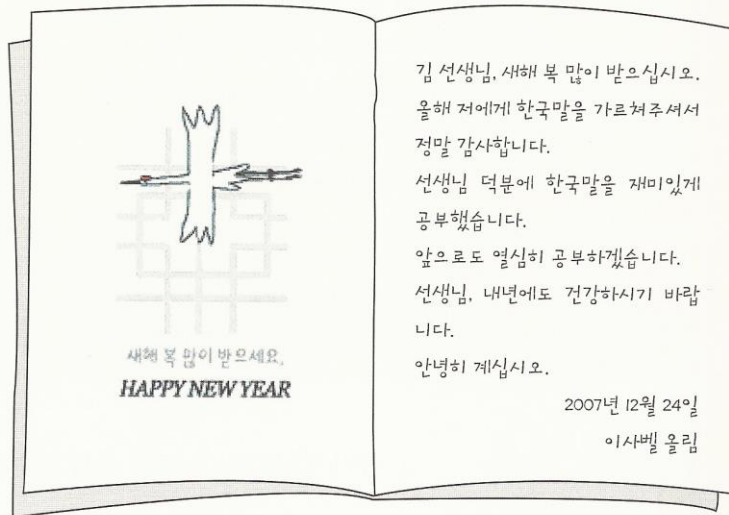 새해 복 많이 받으세요.
HAPPY NEW YEAR
김 선생님, 새해 복 많이 받으십시오.
올해 저에게 한국말을 가르쳐주셔서
정말 감사합니다.
선생님 덕분에 한국말을 재미있게
공부했습니다.
앞으로도 열심히 공부하겠습니다.
선생님, 내년에도 건강하시기 바랍
니다.
안녕히 계십시오.
2007년 12월 24일
이사벨 올림